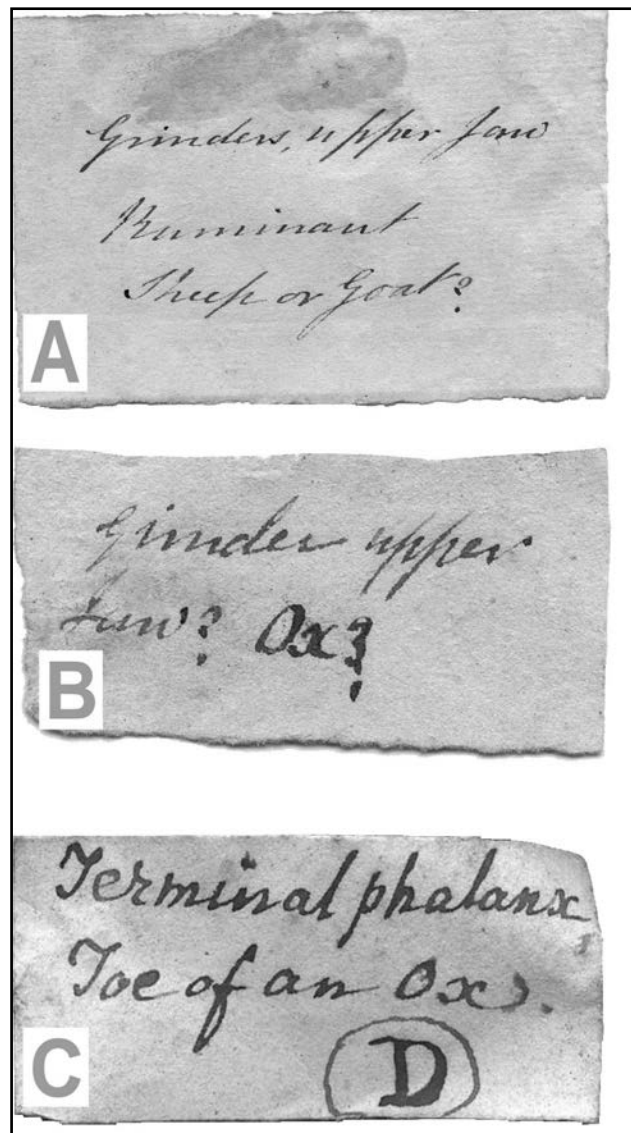 Grinders, upper Jaw
Ruminant
Sheep or Goat?
A
Grinder upper
Jaw? Ox?
B
Terminal phalanx,
Toe of an Ox.
D
C